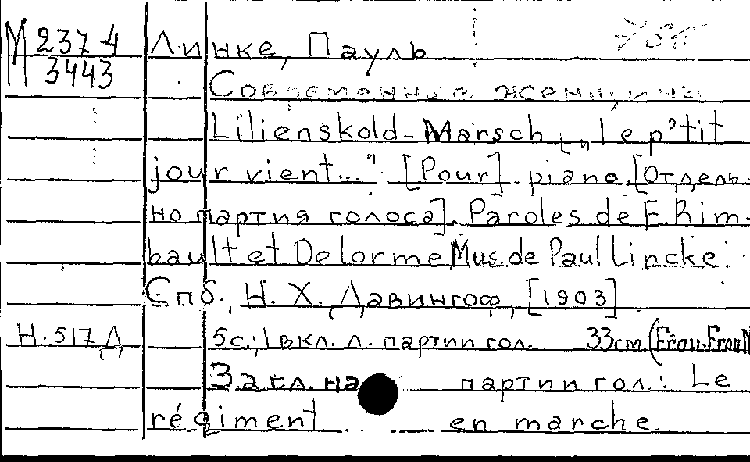 М 237-4 Линке, Пауль
3443 Современная женщина
Lilienskold-Marsch „le p'tit
jour vient..." [Pour] piano [Отдель-
но партия голоса]. Paroles de F. Rim-
bault et Delorme Mus. de Paul Lincke
Спб., Н. Х. Давингоф, [1903]
Н. 517 Д 5с.; 1 вкл. л. партии гол. 33см. (Frou-Frou)
Загл. на партии гол.: Le
régiment en marche